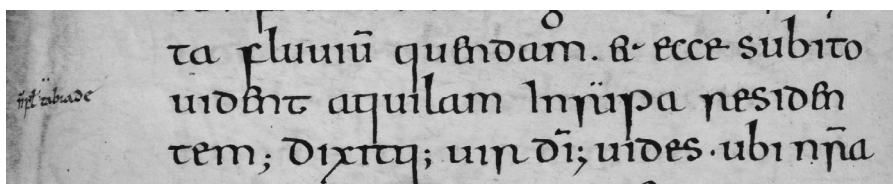 ta fluuiū quendam. & ecce subito
uident aquilam In ripa residen
tem; dixitq; uir dnī; uides · ubi nr̄a